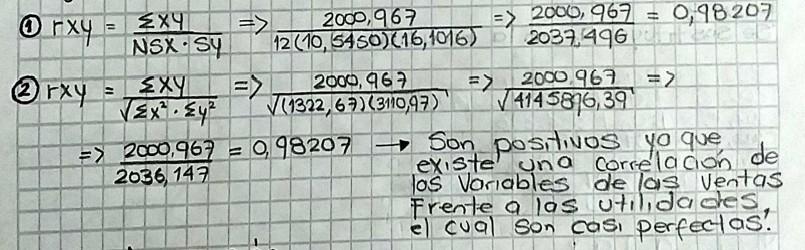 ① rxy = Σxy / NSX·Sy => 2000,967 / 12(10,5450)(16,1016) => 2000,967 / 2037,496 = 0,98207
② rxy = Σxy / √Σx²·Σy² => 2000,967 / √(1322,67)(3110,97) => 2000,967 / √4145896,39 =>
=> 2000,967 / 2036,147 = 0,98207 → Son positivos ya que
existe una correlación de
los Variables de las Ventas
Frente a las utilidades,
el cual son casi perfectas.